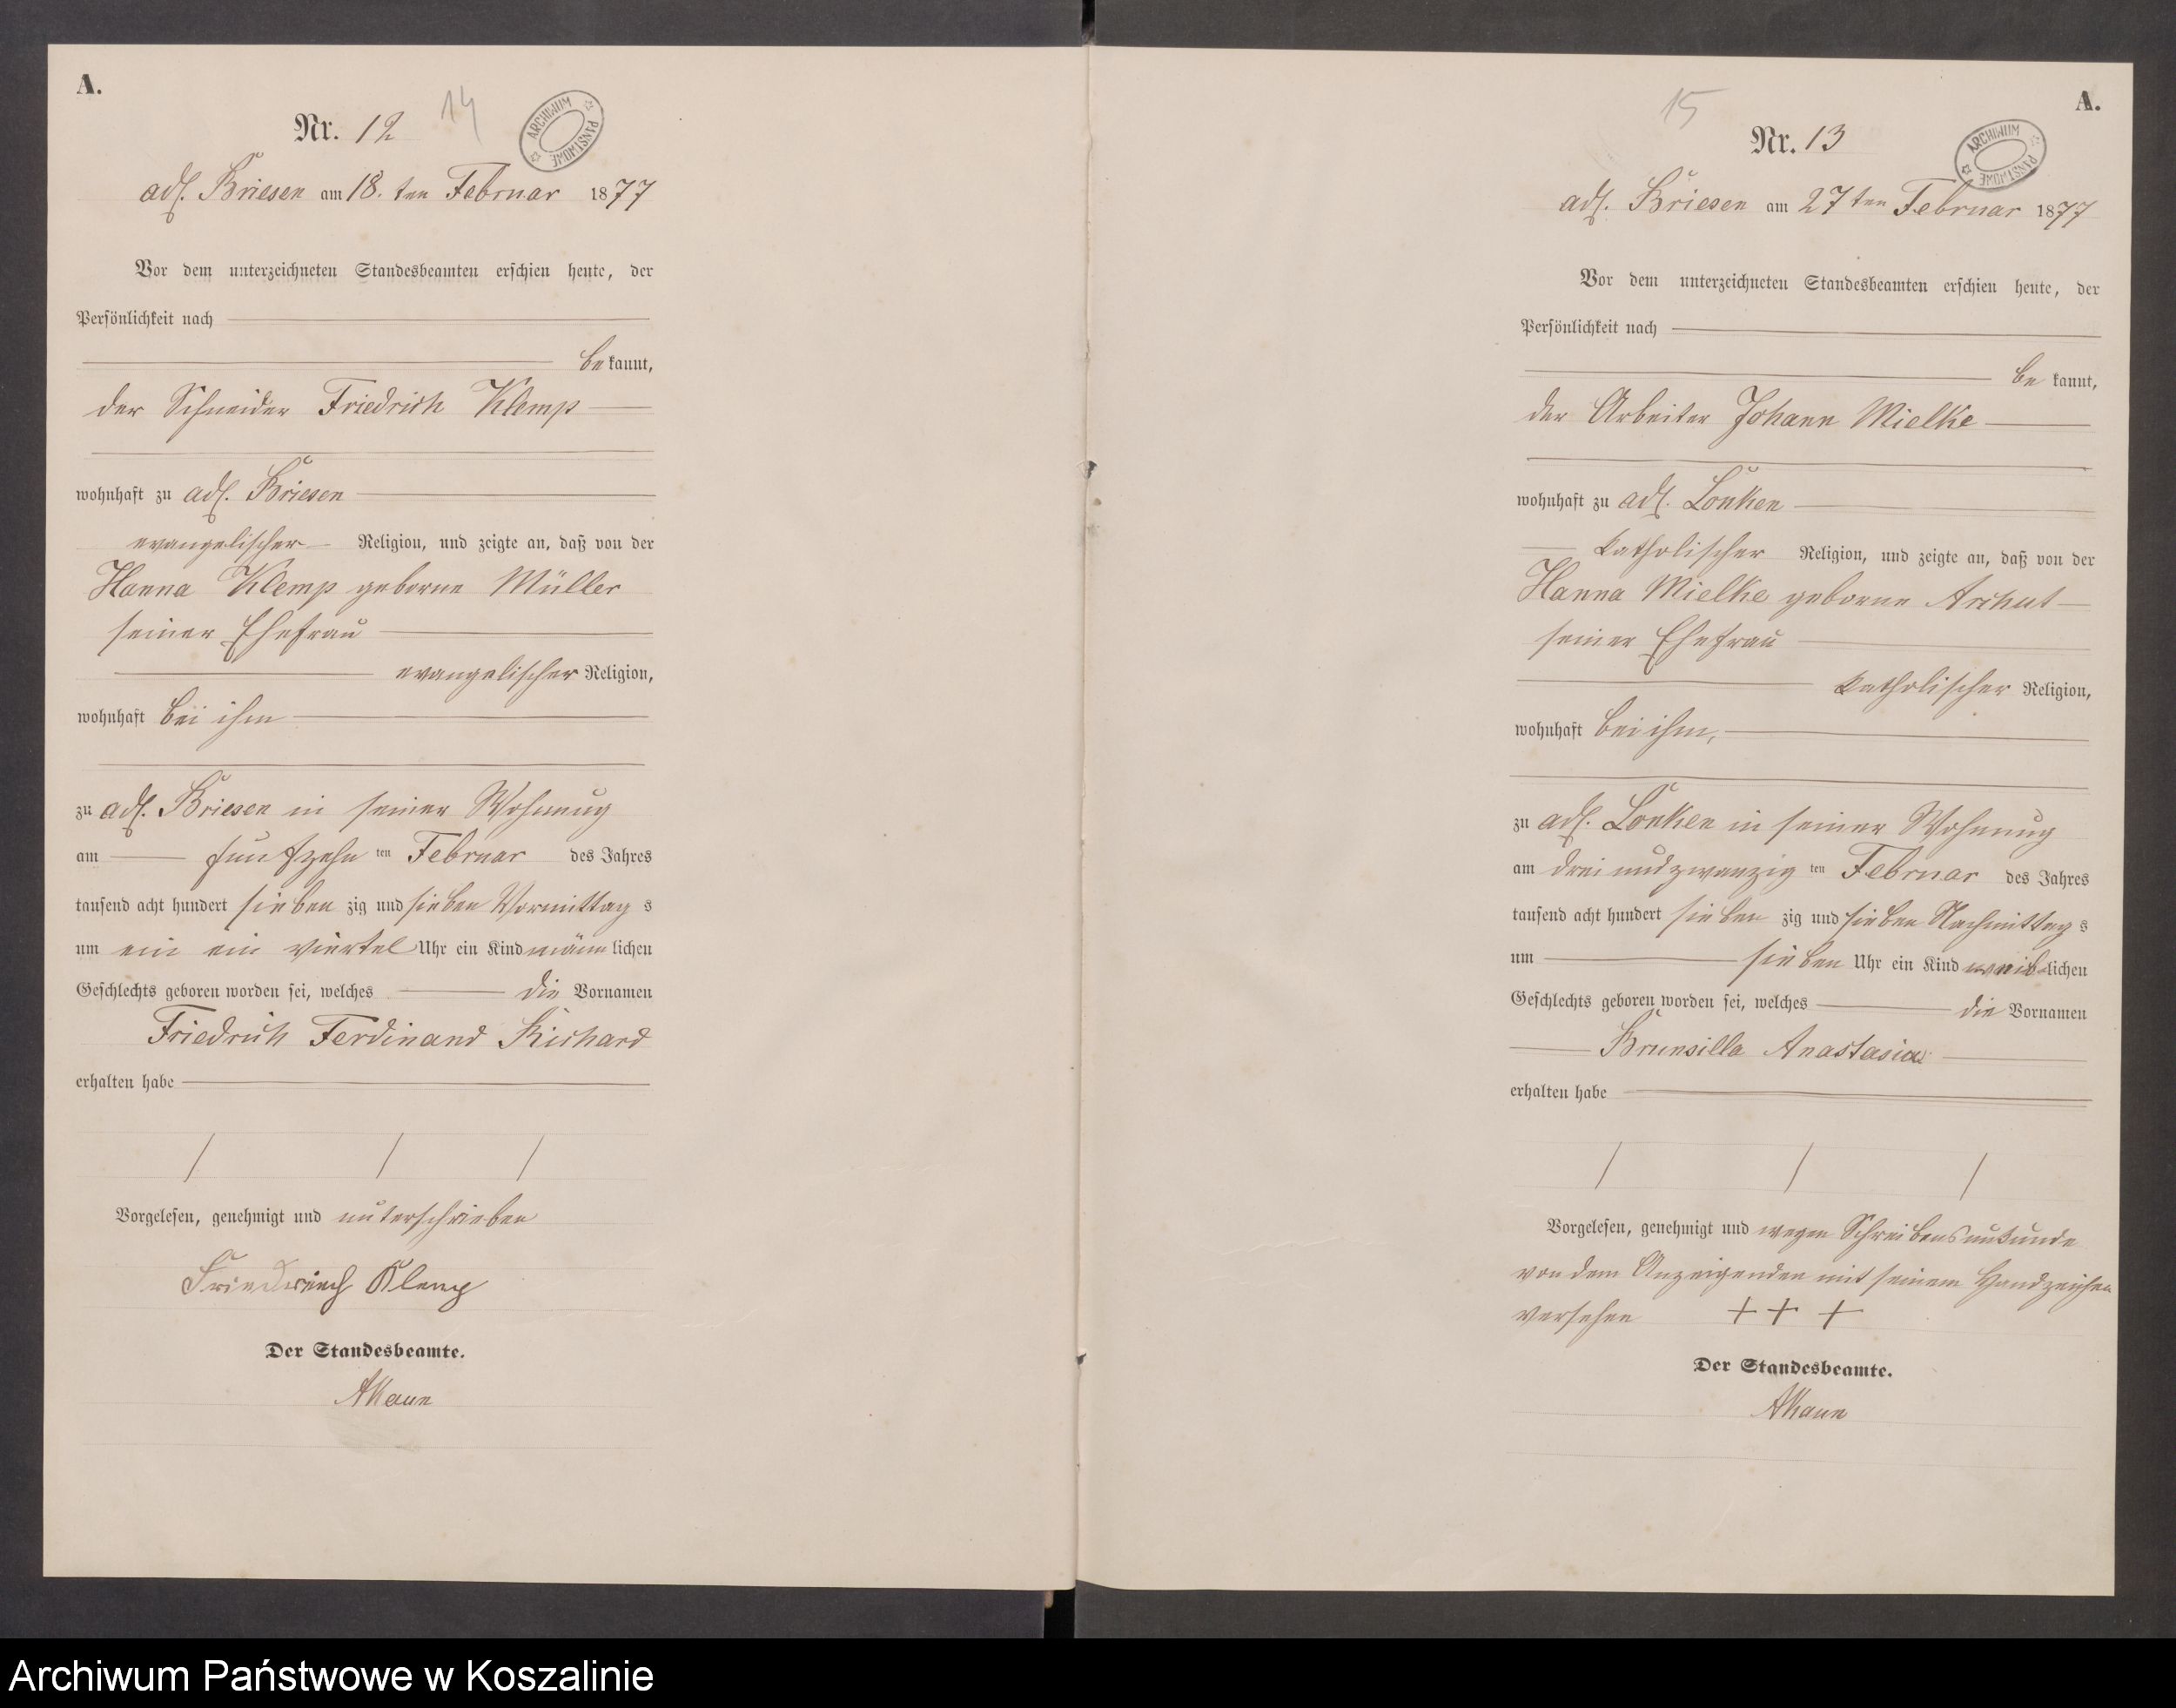 A.
Nr. 12 14
ARCHIWUM PAŃSTWOWE
adl. Briesen am 18. ten Februar 1877
Vor dem unterzeichneten Standesbeamten erschien heute, der
Persönlichkeit nach
be kannt,
der Schneider Friedrich Klemp
wohnhaft zu adl. Briesen
evangelischer Religion, und zeigte an, daß von der
Hanna Klemp geborne Müller
seiner Ehefrau
evangelischer Religion,
wohnhaft bei ihm
zu adl. Briesen in seiner Wohnung
am funfzehn ten Februar des Jahres
tausend acht hundert sieben zig und sieben Vormittag s
um ein ein viertel Uhr ein Kind männ lichen
Geschlechts geboren worden sei, welches die Vornamen
Friedrich Ferdinand Richard
erhalten habe
Vorgelesen, genehmigt und unterschrieben
Friederich Klemp
Der Standesbeamte.
A.
15
Nr. 13
ARCHIWUM PAŃSTWOWE
adl. Briesen am 27 ten Februar 1877
Vor dem unterzeichneten Standesbeamten erschien heute, der
Persönlichkeit nach
be kannt,
der Arbeiter Johann Mielke
wohnhaft zu adl. Lonken
katholischer Religion, und zeigte an, daß von der
Hanna Mielke geborne Archut
seiner Ehefrau
katholischer Religion,
wohnhaft bei ihm,
zu adl. Lonken in seiner Wohnung
am drei und zwanzig ten Februar des Jahres
tausend acht hundert sieben zig und sieben Nachmittag s
um sieben Uhr ein Kind weib lichen
Geschlechts geboren worden sei, welches die Vornamen
Brunsilla Anastasia
erhalten habe
Vorgelesen, genehmigt und wegen Schreibensunkunde
von dem Anzeigenden mit seinem Handzeichen
versehen + + +
Der Standesbeamte.
Archiwum Państwowe w Koszalinie